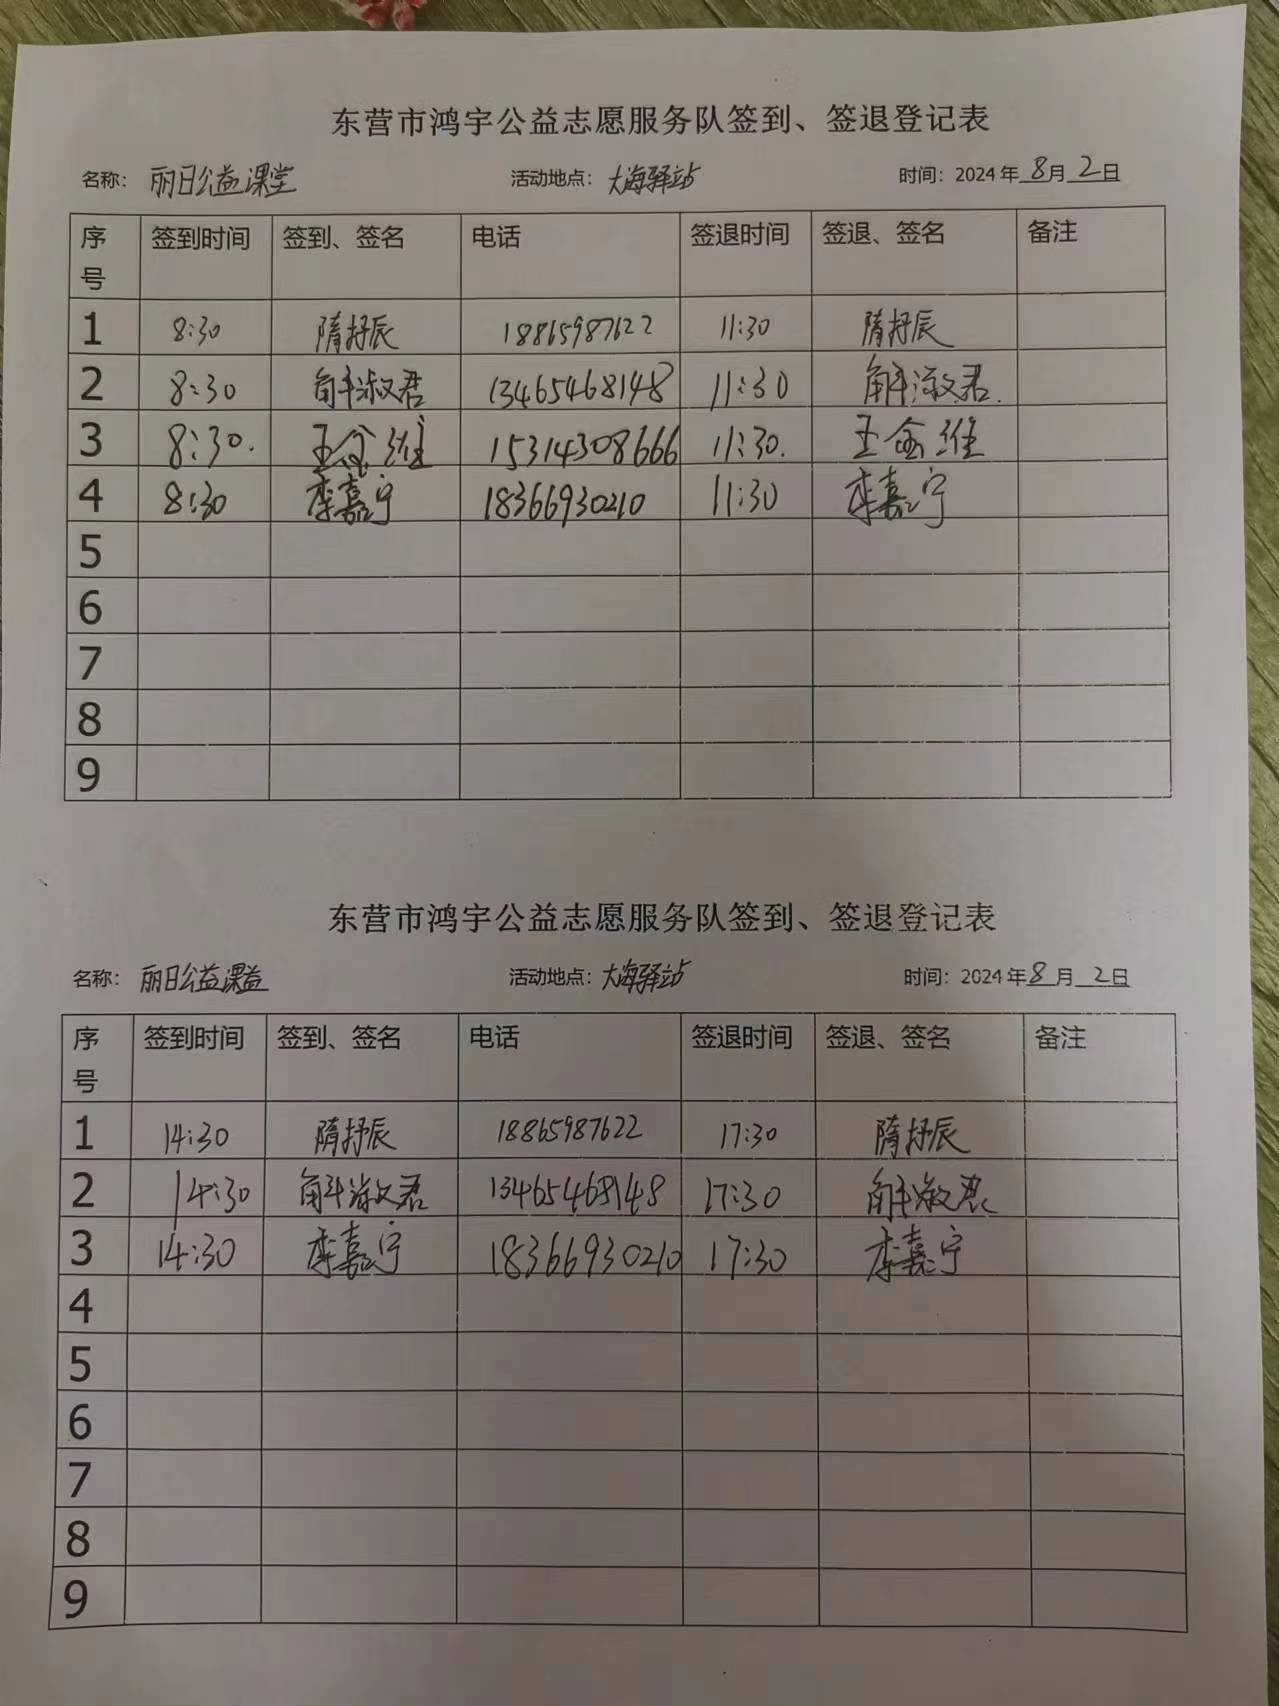 东营市鸿宇公益志愿服务队签到、签退登记表
名称：丽日公益课堂 活动地点：大海驿站 时间：2024年8月2日
序号 签到时间 签到、签名 电话 签退时间 签退、签名 备注
1 8:30 隋抒辰 18865987622 11:30 隋抒辰
2 8:30 解淑君 13465468148 11:30 解淑君.
3 8:30. 王金维 15314308666 11:30. 王金维
4 8:30 李嘉宁 18366930210 11:30 李嘉宁
5
6
7
8
9
东营市鸿宇公益志愿服务队签到、签退登记表
名称：丽日公益课益 活动地点：大海驿站 时间：2024年8月2日
序号 签到时间 签到、签名 电话 签退时间 签退、签名 备注
1 14:30 隋抒辰 18865987622 17:30 隋抒辰
2 14:30 解淑君 13465468148 17:30 解淑君
3 14:30 李嘉宁 18366930210 17:30 李嘉宁
4
5
6
7
8
9